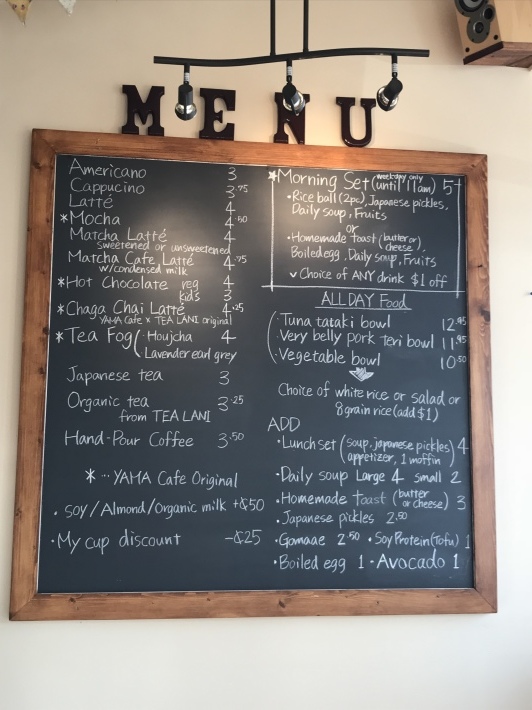 MENU
Americano 3
Cappucino 3.75
Latté 4
*Mocha 4.50
Matcha Latté 4
sweetened or unsweetened
Matcha Cafe Latté 4.75
w/condensed milk
*Hot Chocolate reg 4
kids 3
*Chaga Chai Latté 4.25
YAMA Cafe x TEA LANI original
*Tea Fog ( Houjcha 4
Lavender earl grey
Japanese tea 3
Organic tea 3.25
from TEA LANI
Hand-Pour Coffee 3.50
* ... YAMA Cafe Original
• Soy/Almond/Organic milk +¢50
• My cup discount -¢25
*Morning Set (until 11am) weekday only 5+
• Rice ball (2pc), Japanese pickles,
Daily soup, Fruits
or
• Homemade toast (butter or cheese),
Boiled egg, Daily soup, Fruits
✓ Choice of ANY drink $1 off
ALLDAY Food
Tuna tataki bowl 12.95
Very belly pork teri bowl 11.95
Vegetable bowl 10.50
Choice of white rice or salad or
8 grain rice (add $1)
ADD
• Lunch set (soup, japanese pickles, appetizer, 1 moffin) 4
• Daily soup Large 4 small 2
• Homemade toast (butter or cheese) 3
• Japanese pickles 2.50
• Gomaae 2.50 • Soy Protein (Tofu) 1
• Boiled egg 1 • Avocado 1